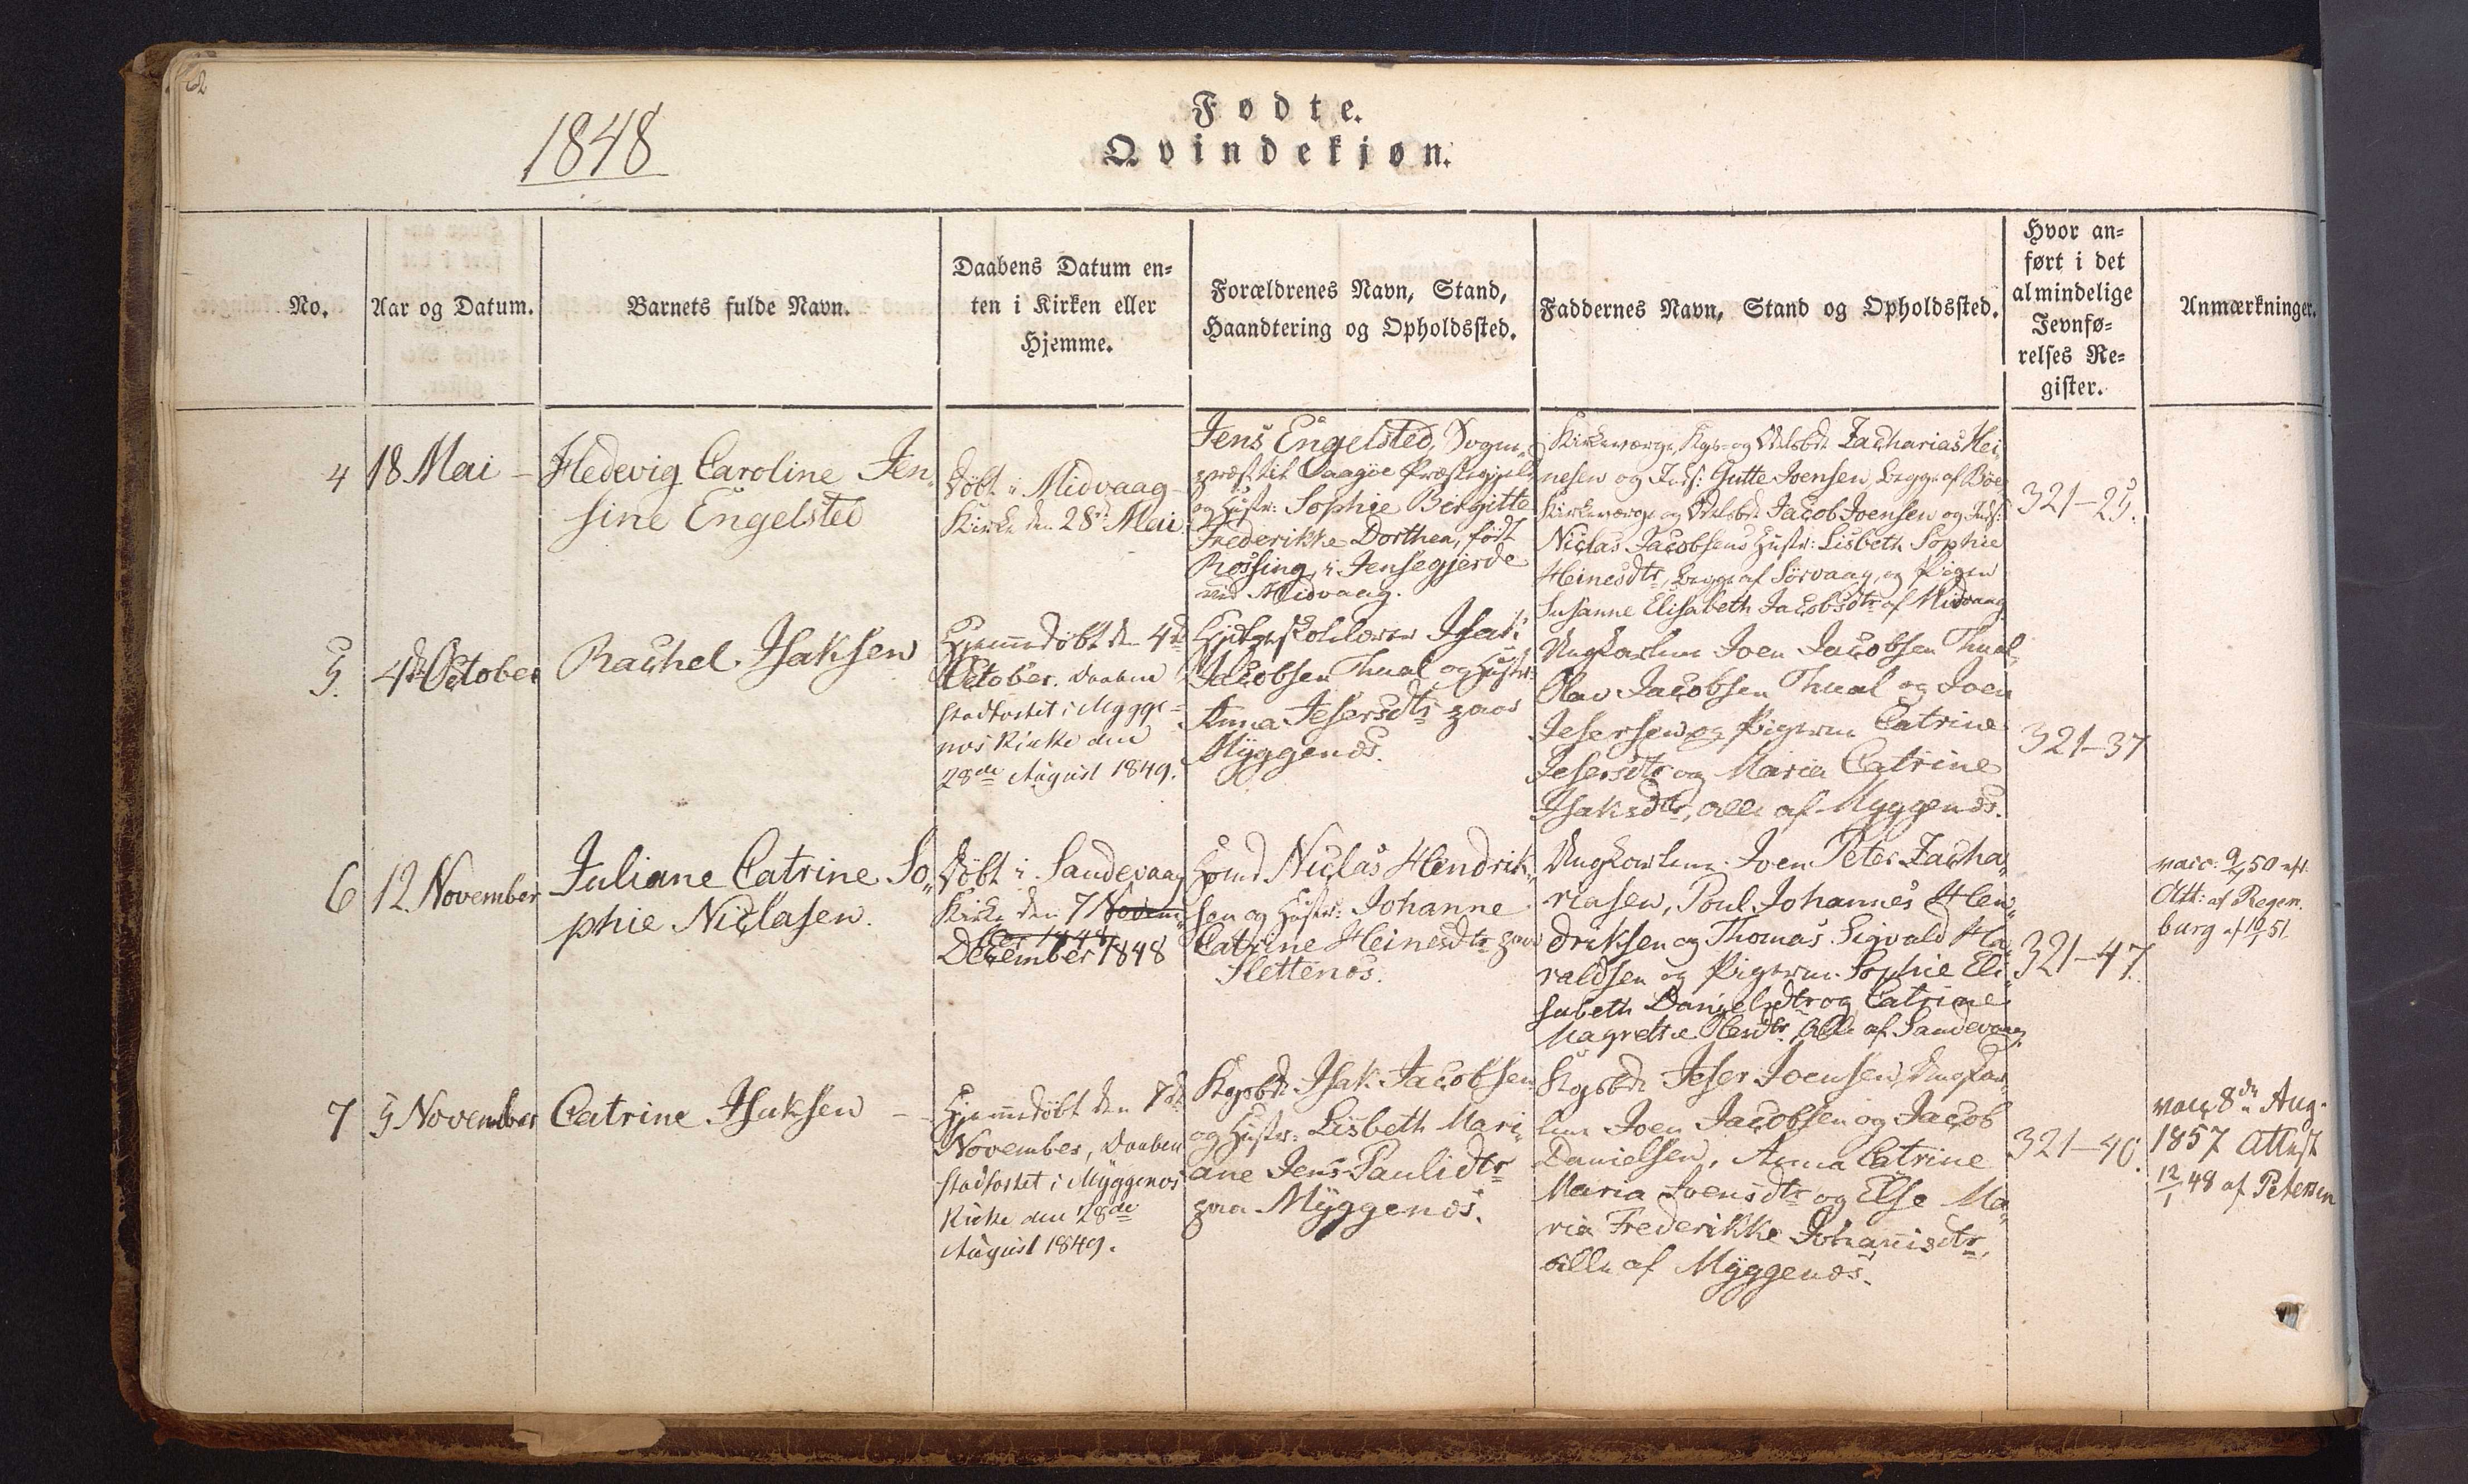 1848
Fødte.
Qvindekjøn.
No.
Aar og Datum.
Barnets fulde Navn.
Daabens Datum en-
ten i Kirken eller
Hjemme.
Forældrenes Navn, Stand,
Haandtering og Opholdssted.
Faddernes Navn, Stand og Opholdssted.
Hvor an-
ført i det
almindelige
Jevnfø-
relses Re-
gister.
Anmærkninger.
4
18 Mai -
Hedevig Caroline Jen„
sine Engelsted
Døbt i Midvaag
Kirke den 28de Mai
Jens Engelsted, Sogne„
præst til Vaagøe Præstegjeld
og Hustr: Sophie Birgitte
Frederikke Dorthea, født
Røssing, i Jensegjerde
ved Midvaag.
Kirkeværge, Kgs- og Odelsbde Zacharias Hei„
nesen og Inds: Gutte Joensen, begge af Bøe,
Kirkeværge og Odelsbde Jacob Joensen og Inds:
Niclas Jacobsens Hustr: Lisbeth Sophie
Heinesdtr, begge af Sørvaag, og Pigen
Susanne Elisabeth Jacobsdtr af Midvaag
321-25.
5.
4de October
Rachel Isaksen
Hjemmedøbt den 4de
October. Daaben
stadfæstet i Mygge-
nøs Kirke den
28de August 1849.
Hjelpeskolelærer Isak
Jacobsen Thual og Hustr:
Anna Jesersdtr paa
Myggenøs.
Ungkarlene Joen Jacobsen Thual,
Olav Jacobsen Thual og Joen
Jesersen og Pigerne Catrine
Jesersdtr og Maria Catrine
Isaksdtr, alle af Myggenøs.
321-37
6
12. November
Juliane Catrine So„
phie Niclasen.
Døbt i Sandevaag
Kirke den 7 Novem„
ber 1848
December 1848
Huusmd Niclas Hendrik„
sen og Hustr: Johanne
Catrine Heinesdtr paa
Slettenøs.
Ungkarlene Joen Peter Zacha„
riasen, Poul Johannes Hen„
driksen og Thomas Sigvald Ha„
raldsen og Pigerne Sophie Eli„
sabeth Danielsdtr og Catrine
Magrethe Olesdtr, alle af Sandevaag.
321-47.
vacc: 9/7 50 eft.
Att: af Regen„
burg af 10/1 51.
7
5 November
Catrine Isaksen -
Hjemmedøbt den 7de
November, Daaben
stadfæstet i Myggenøs
Kirke den 28de
August 1849.
Kgsbde Isak Jacobsen
og Hustr: Lisbeth Mari„
ane Jens-Paulidtr
paa Myggenøs.
Kgsbde Jeser Joensen, Ungkar„
lene Joen Jacobsen og Jacob
Danielsen, Anna Catrine
Maria Joensdtr og Else Ma„
ria Frederikke Johanisdtr,
alle af Myggenøs.
321-40.
vacc 8de Aug.
1857 Attest
12/1 48 af Petersen